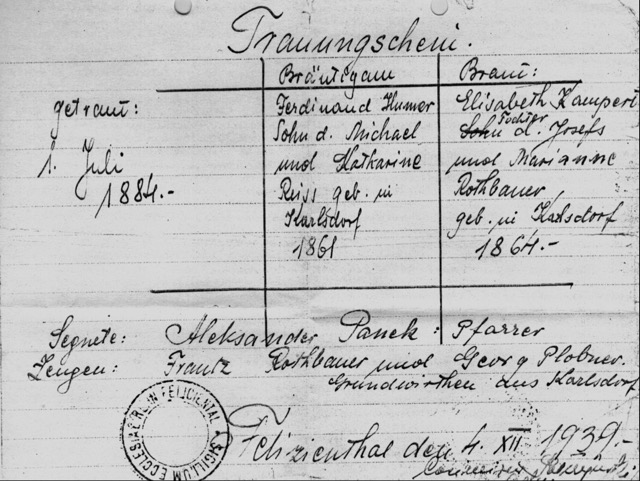 Trauungschein.
Bräutigam
Braut:
getraut:
1. Juli
1884.-
Ferdinand Humer
Sohn d. Michael
und Katharine
Reiss geb. in
Karlsdorf
1861
Elisabeth Kampert
Sohn Tochter d. Josefs
und Marianne
Rothbauer
geb. in Karlsdorf
1864.-
Segnete: Aleksander Panek: Pfarrer
Zeugen: Frantz Rothbauer und Georg Plobner.
Grundwirthen aus Karlsdorf
Felizienthal den 4. XII. 1939.-
SIGILLUM ECCLESIAE FELICIENTAL